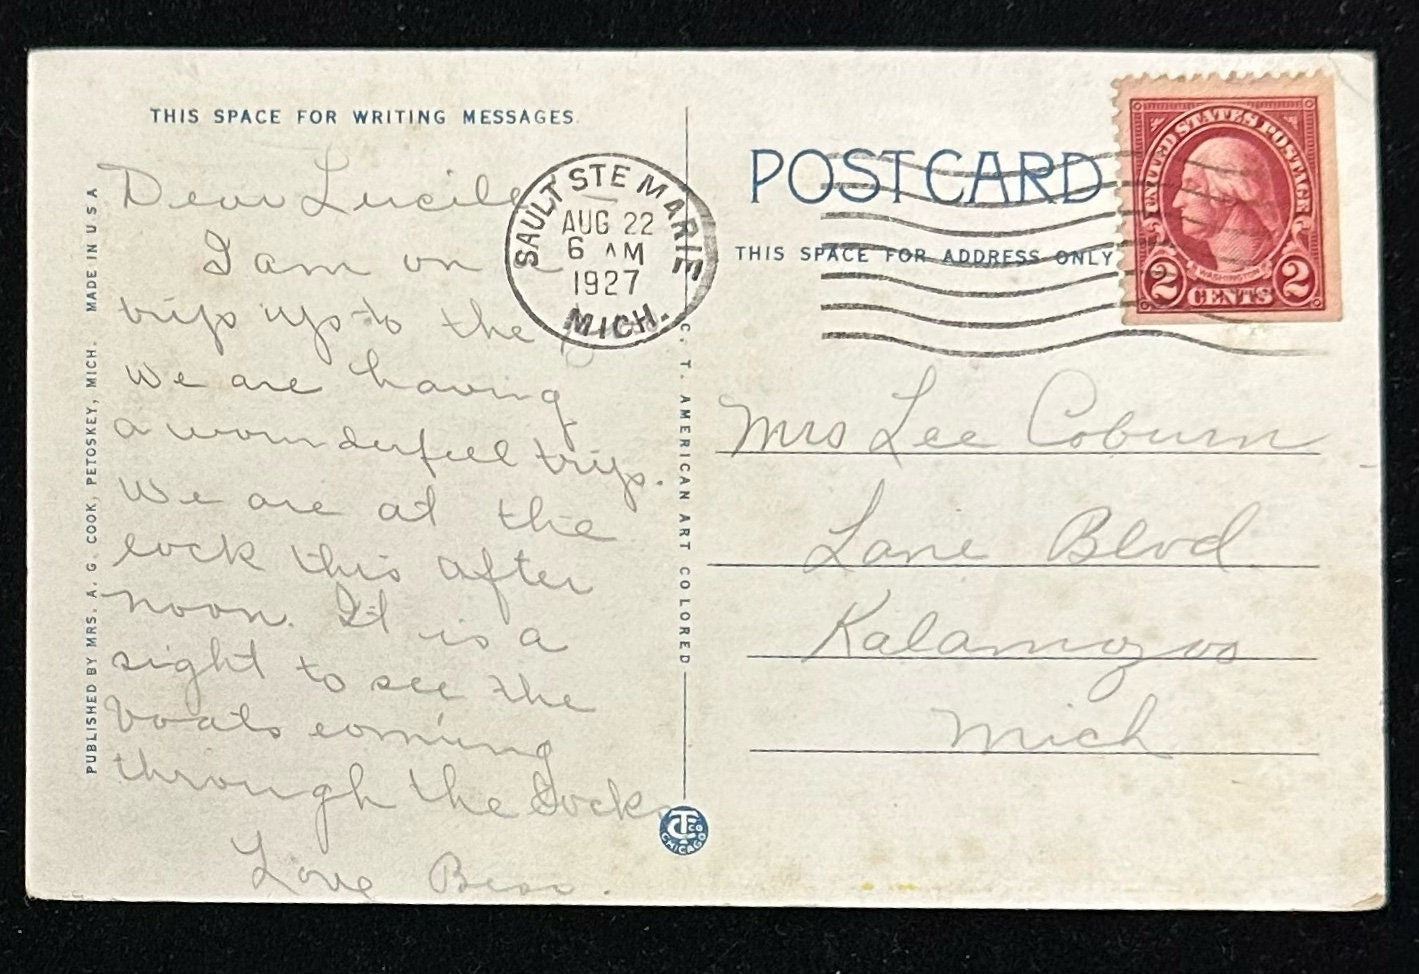 THIS SPACE FOR WRITING MESSAGES.
Dear Lucile
I am on a
trip up to the
We are having
a wonderful trip.
We are at the
lock this after
noon. It is a
sight to see the
boats coming
through the Locks
Love Bess.
PUBLISHED BY MRS. A. G. COOK, PETOSKEY, MICH. MADE IN U S A
SAULT STE MARIE
AUG 22
6 AM
1927
MICH.
C. T. AMERICAN ART COLORED
CT CO
CHICAGO
POST CARD
THIS SPACE FOR ADDRESS ONLY
UNITED STATES POSTAGE
WASHINGTON
2 CENTS 2
Mrs Lee Coburn
Lane Blvd.
Kalamazoo
Mich